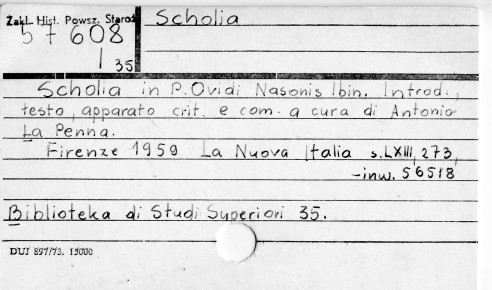 Zakł. Hist. Powsz. Staroż
Scholia
57608
1 35
Scholia in P. Ovidi Nasonis Ibin. Introd.,
testo, apparato crit. e com. a cura di Antonio
La Penna.
Firenze 1959 La Nuova Italia s. LXIII, 273,
-inw. 56518
Biblioteka di Studi Superiori 35.
DUJ 897/73. 15000